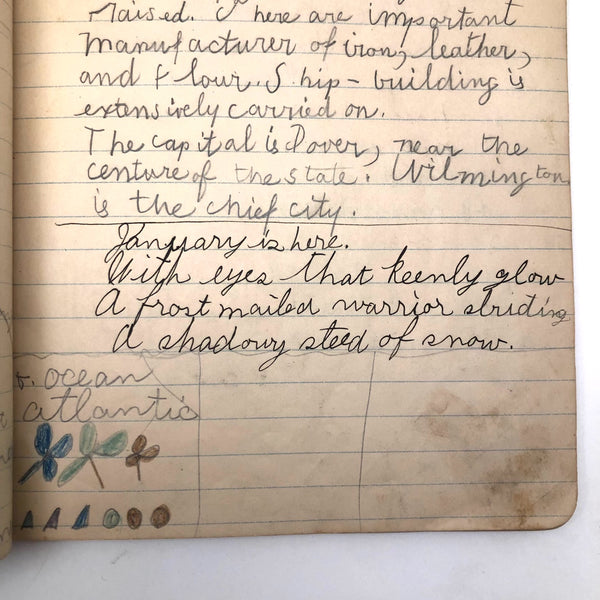 raised. There are important
manufacturer of iron, leather,
and flour. Ship-building is
extensively carried on.
The capital is Dover, near the
centure of the state. Wilmington
is the chief city.
January is here.
With eyes that keenly glow
A frost mailed warrior striding
A shadowy steed of snow.
ocean
atlantic